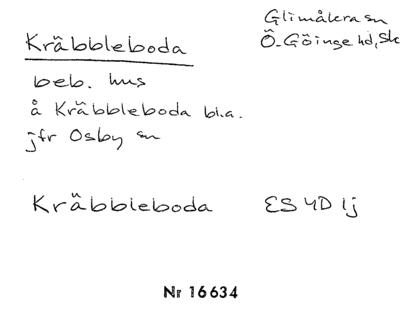 Glimåkra sn
Kräbbleboda
Ö. Göinge hd, Sk
beb. hus
å Kräbbleboda bl.a.
jfr Osby sn
Kräbbleboda ES 4D 1j
Nr 16634